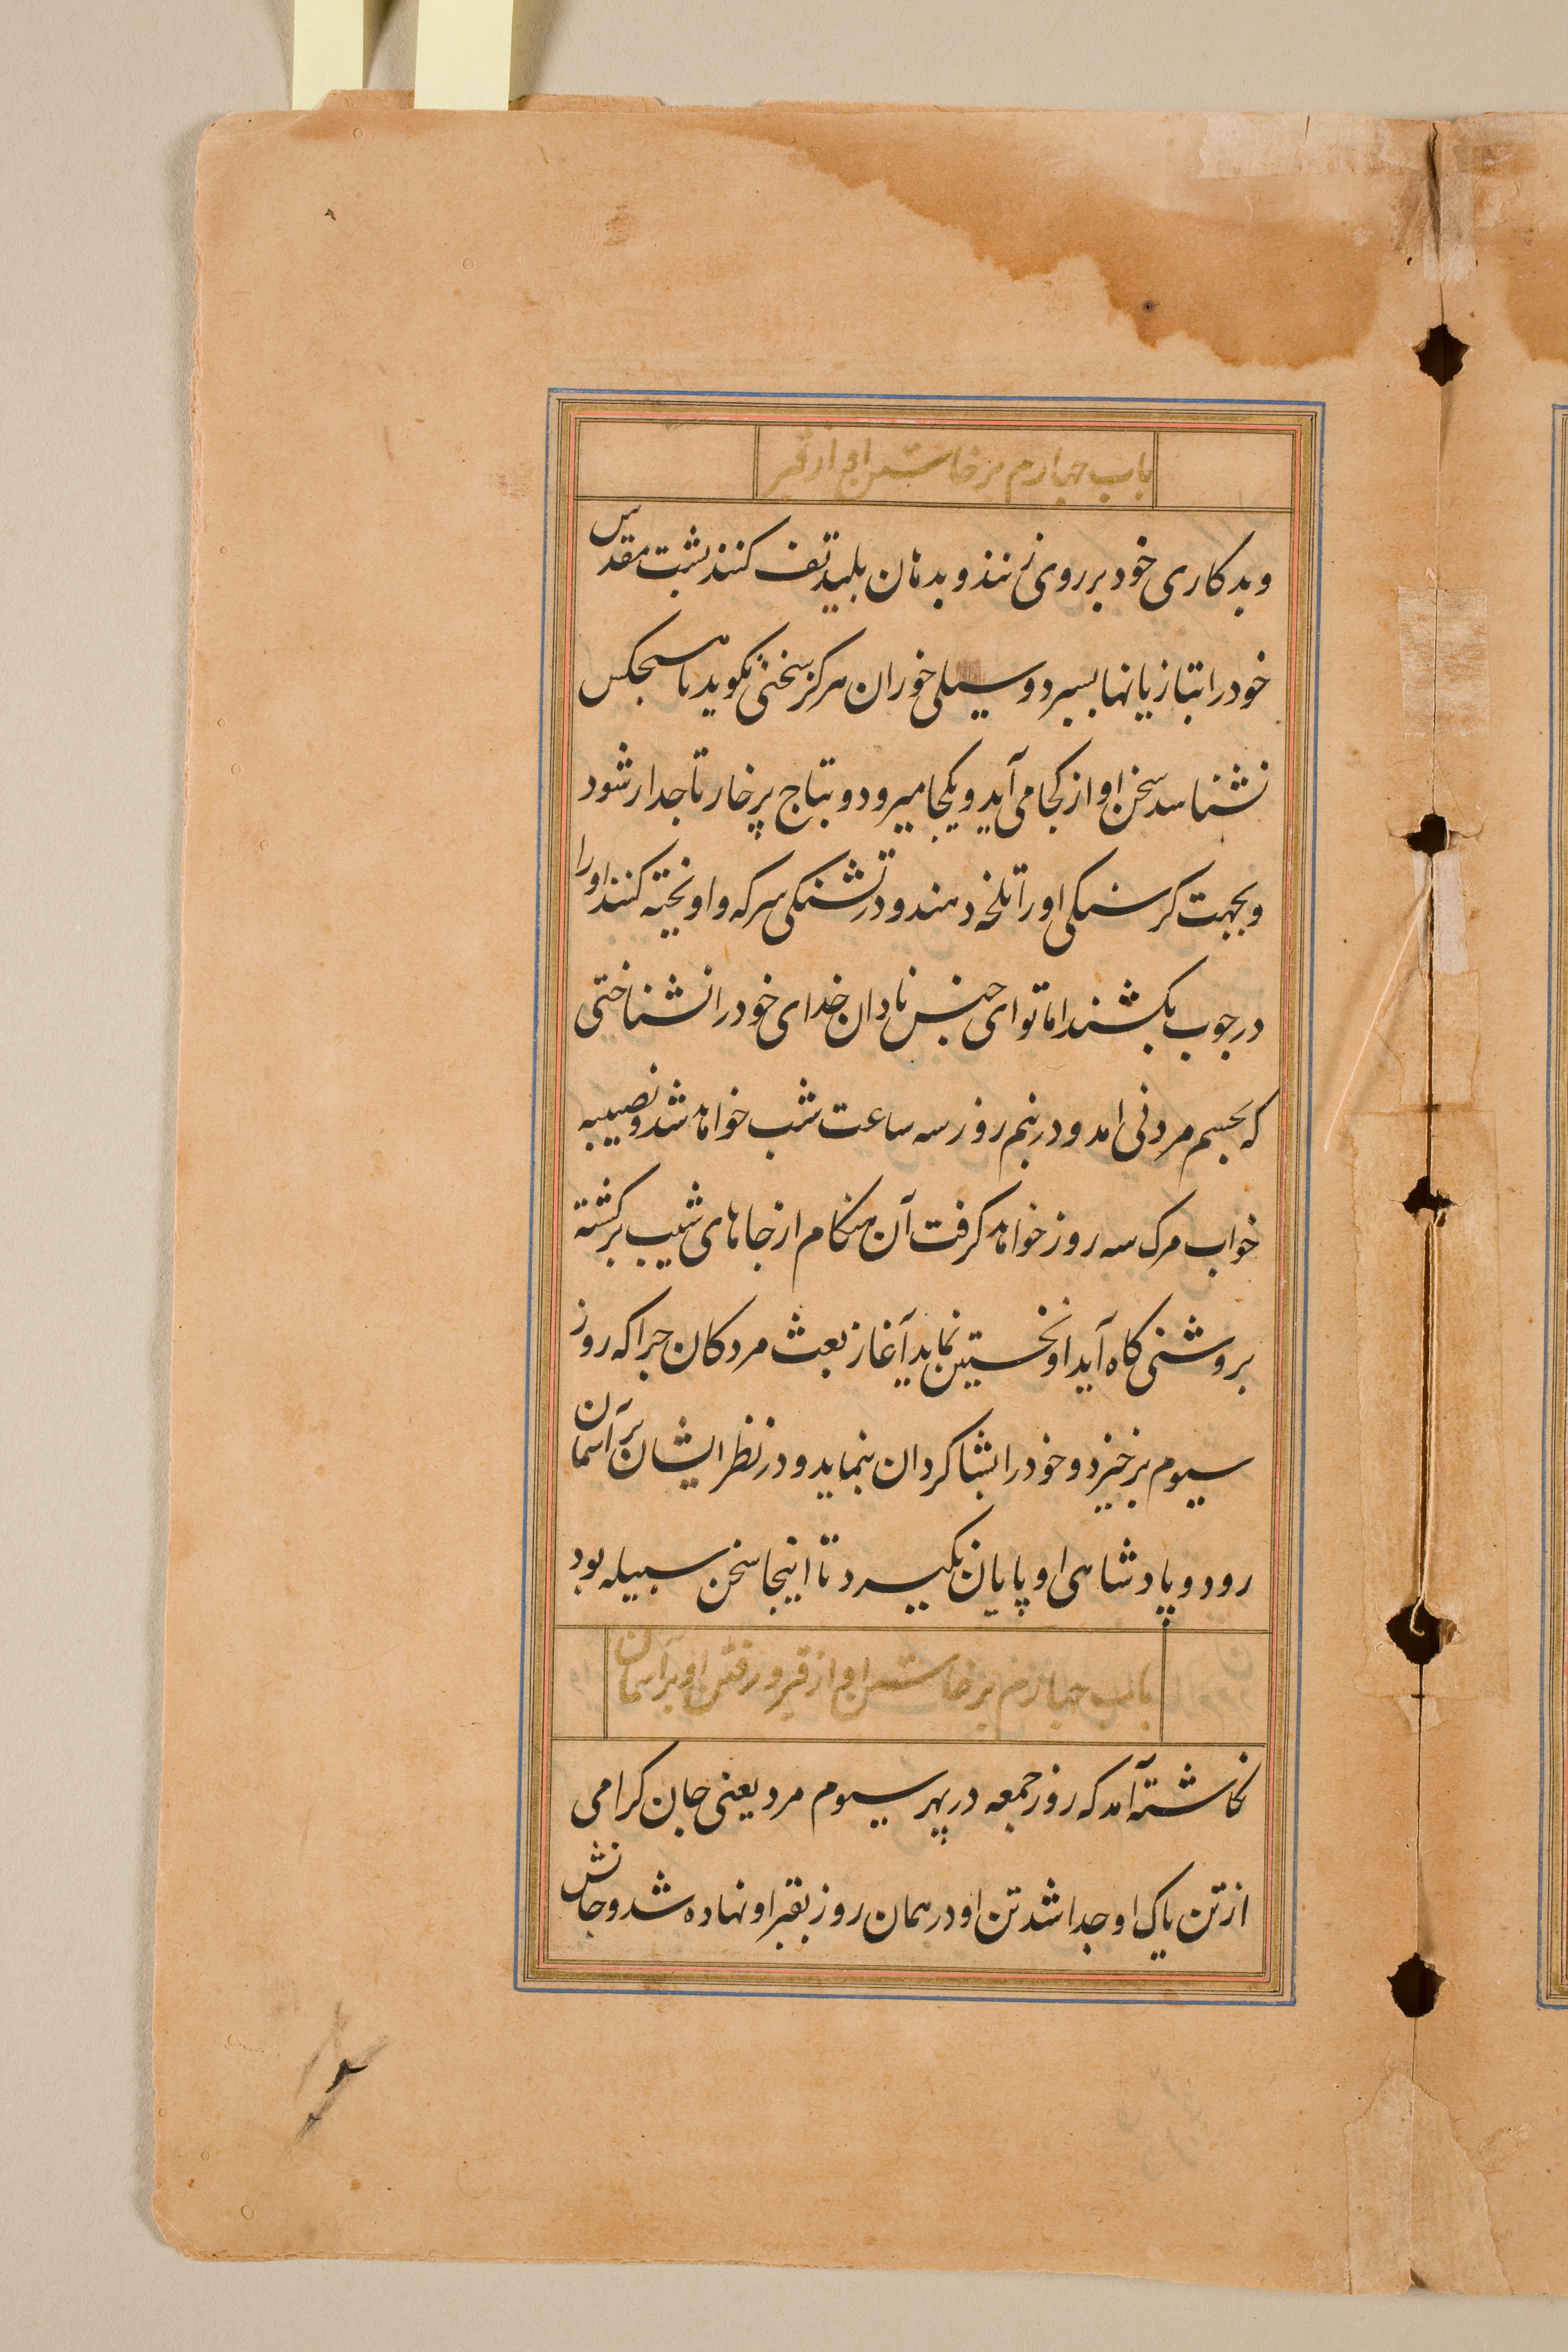 باب چهارم برخاستن او از قبر
و بدکاری خود بر روی زنند و بدهان پلید تف کنند پشت مقدس
خود را بتازیانها بسپرد و سیلی خوران هرکز سخنی نکوید تا هیچکس
نشناسد سخن او از کجا می آید و بکجا میرود و بتاج پر خار تاجدار شود
و بجهت کرسنکی او را تلخه دهند و در تشنکی سرکه و اونخیته کنند او را
در چوب بکشند اما تو ای جنس نادان خدای خود را نشناختی
که بجسم مردنی امد و در نیم روز سه ساعت شب خواهد شد و نصیبه
خواب مرک سه روز خواهد کرفت آن هنکام از جاهای شیب برکشته
بروشنی کاه آید او نخستین نماید آغاز بعث مردکان چرا که روز
سیوم برخیزد و خود را بشاکردان بنماید و در نظر ایشان بر آسمان
رود و پادشاهی او پایان نکیرد تا اینجا سخن سبیله بود
باب چهارم برخاستن او از قبر و رفتن او بر آسمان
نکاشته آمد که روز جمعه در پهر سیوم مرد یعنی جان کرامی
از تن پاک او جدا شد تن او در همان روز بقبر او نهاده شد و جانش